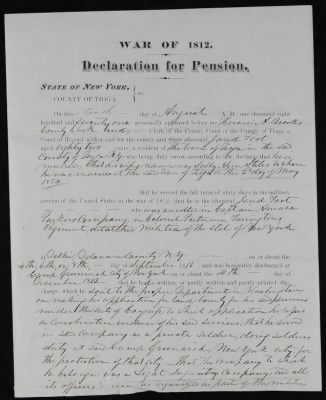 WAR OF 1812.
Declaration for Pension.
STATE OF NEW YORK,
COUNTY OF TIOGA.
On this tenth day of August A. D. one thousand eight
hundred and seventy one personally appeared before me Horace A Brooks
County Clerk and Clerk of the County Court of the County of Tioga, a
Court of Record within and for the county and State aforesaid Jared Foot
aged eighty two years a resident of the town of Tioga in the said
County of Tioga N.Y. who being duly sworn according to law declares that he is
married, that his wife's name was Sally Ann Stiles to whom
he was married at the town of Tioga on the 2d day of May
1854
that he served the full term of sixty days in the military
service of the United States in the war of 1812, that he is the identical Jared Foot
who was enlisted in Captain
Parkers Company, in Colonel Farringtons
Regiment detailed Militia of the State of New York
at Delhi Delaware County N.Y. on or about the
4th, 6th or 8th day of September 1812, and was honorably discharged at
Camp Greenwich City of New York on or about the 4th day of
December 1812 that he
on making his application for land bounty for his
under the acts of Congress, to which application he refers
as said service, that he served
in said Company as a private Soldier, doing Soldiers
duty at said Camp Greenwich, New York city for
the protection of that city That the Company to which
he belonged was a Light Infantry Company, and all
its officers men was organized as part of the